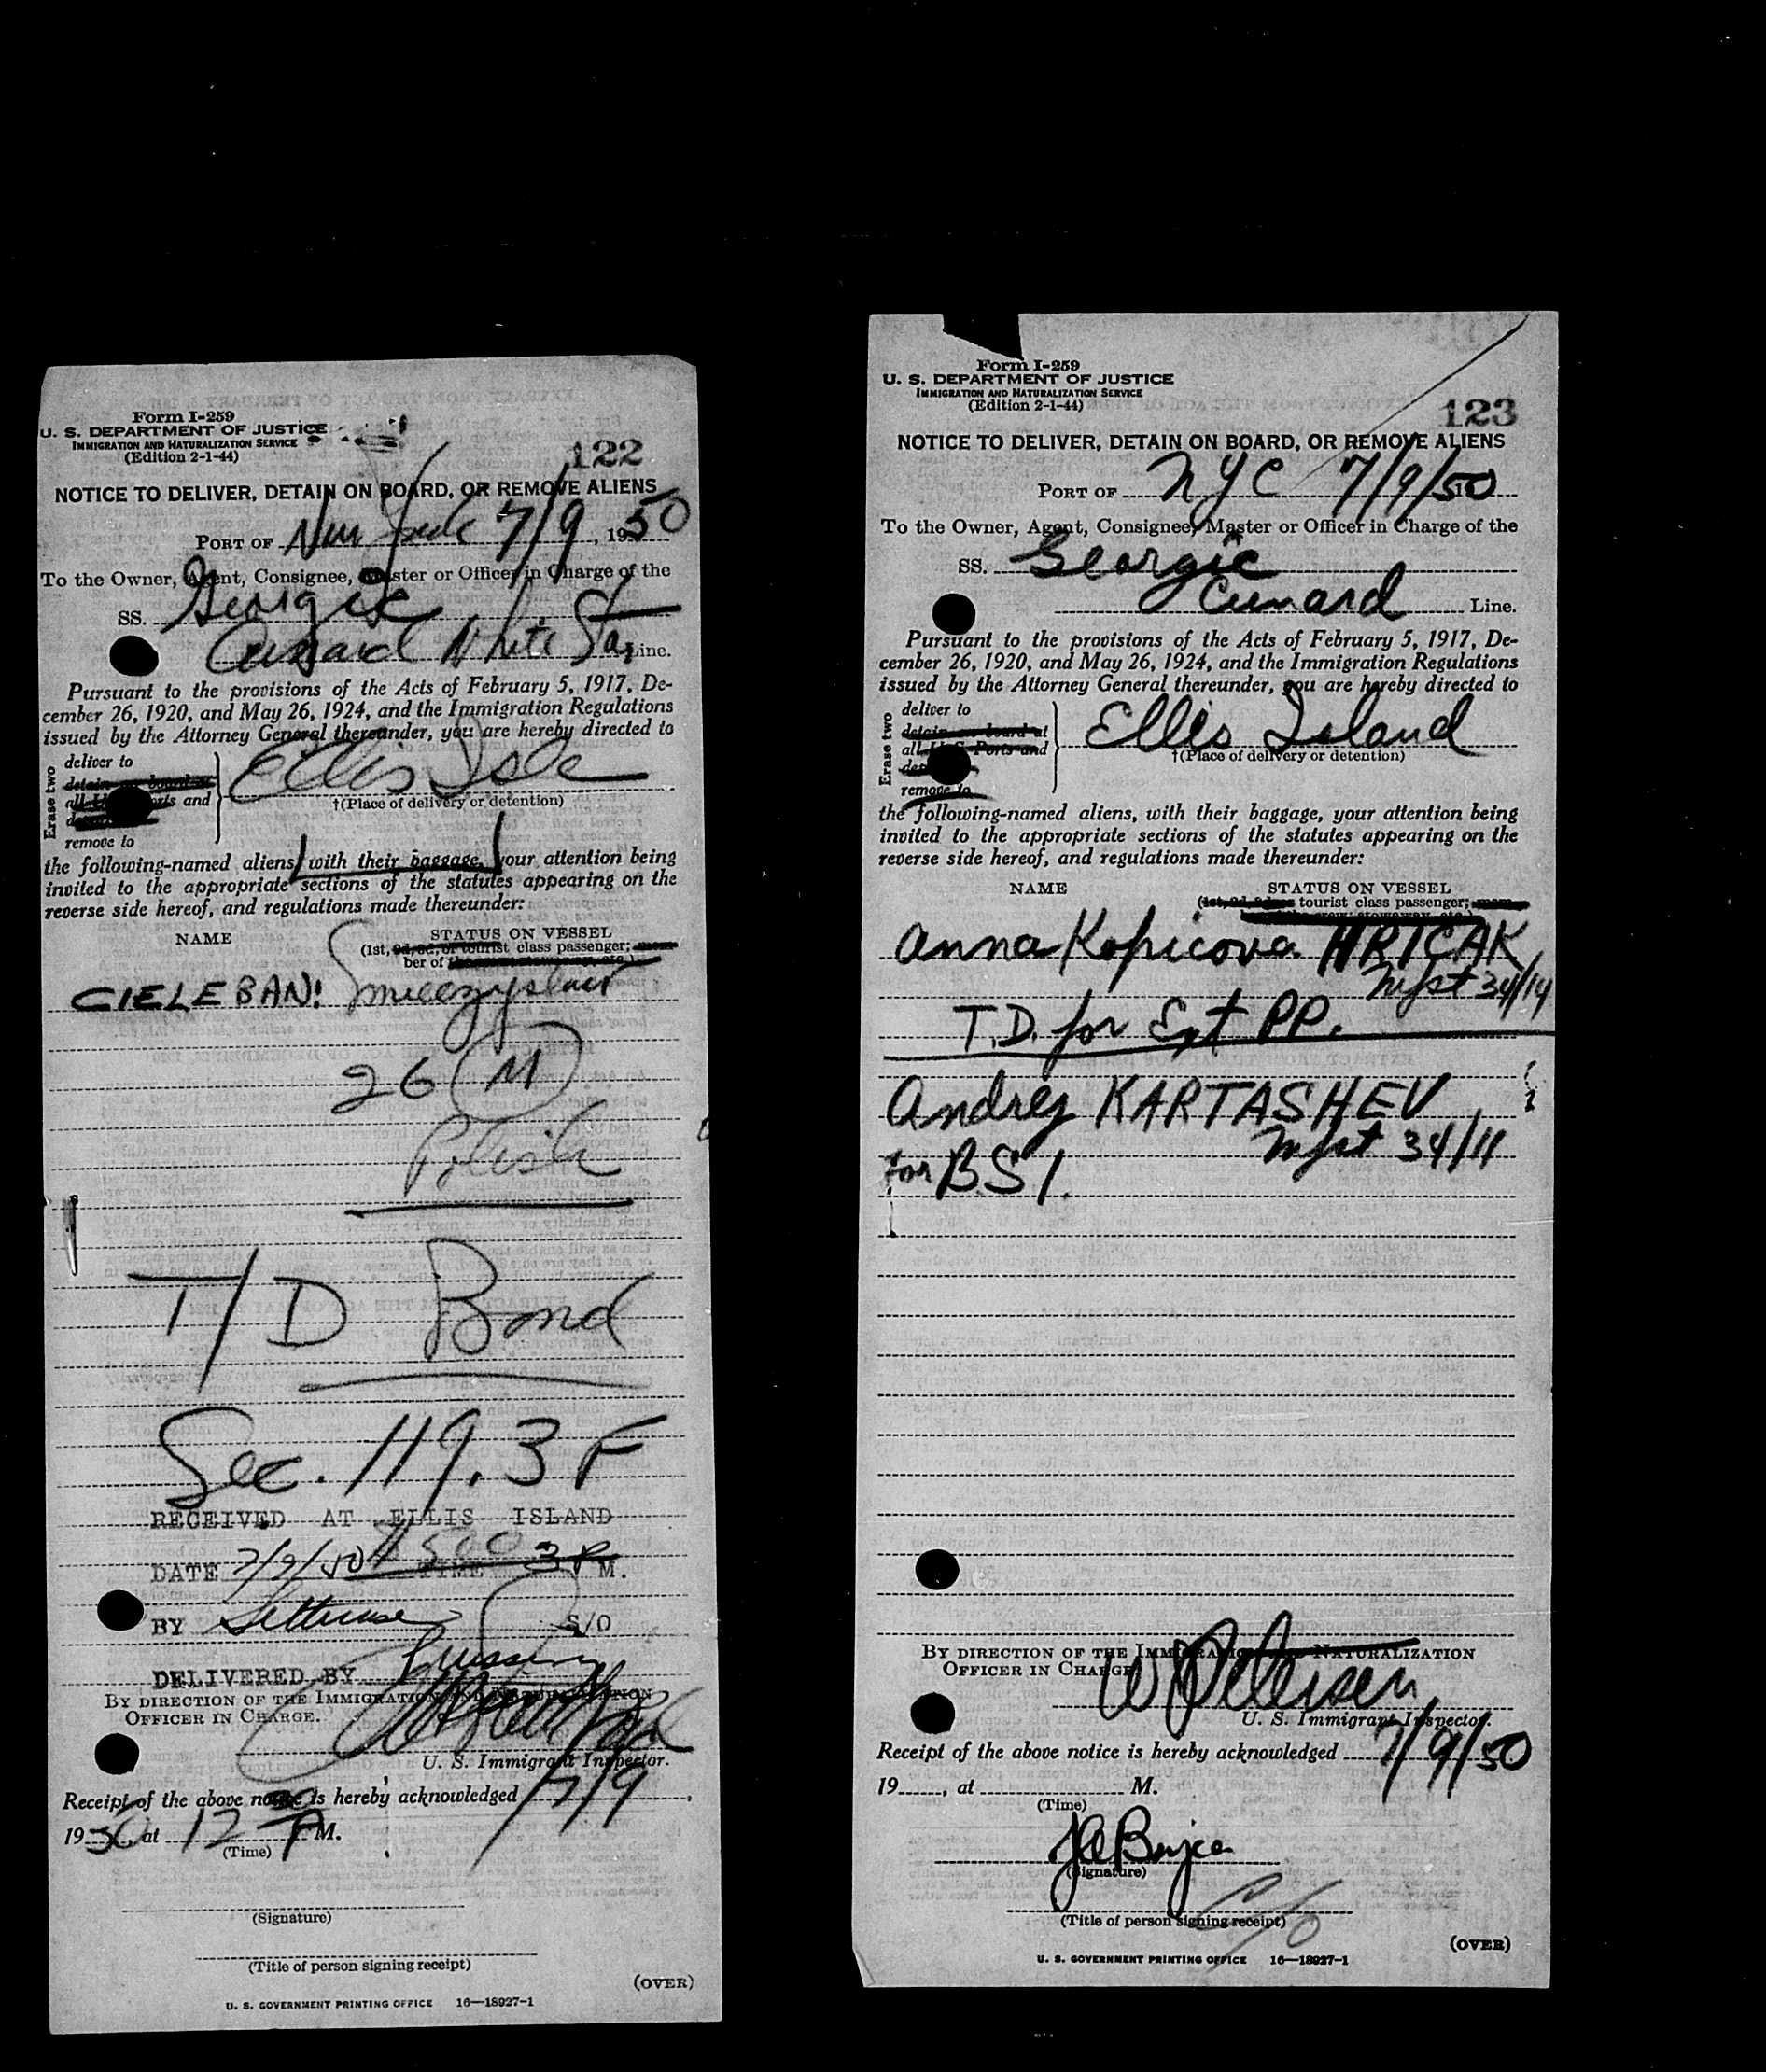 Form I-259
U. S. DEPARTMENT OF JUSTICE
IMMIGRATION AND NATURALIZATION SERVICE
(Edition 2-1-44)
122
NOTICE TO DELIVER, DETAIN ON BOARD, OR REMOVE ALIENS
PORT OF New York 7/9, 1950
To the Owner, Agent, Consignee, Master or Officer in Charge of the
SS. Georgic
Cunard White Star Line.
Pursuant to the provisions of the Acts of February 5, 1917, De-
cember 26, 1920, and May 26, 1924, and the Immigration Regulations
issued by the Attorney General thereunder, you are hereby directed to
Erase two
deliver to
detain on board at
all U.S. Ports and
remove to
Ellis Isle
†(Place of delivery or detention)
the following-named aliens, with their baggage, your attention being
invited to the appropriate sections of the statutes appearing on the
reverse side hereof, and regulations made thereunder:
NAME STATUS ON VESSEL
(1st, 2d, 3d, or tourist class passenger; mem-
ber of the crew; stowaway, etc.)
CIELEBAN!
26 (M)
Polish
T/D Bond
Sec. 119.3 F
RECEIVED AT ELLIS ISLAND
DATE 7/9/50 TIME 3 P M.
BY S/O
DELIVERED BY
BY DIRECTION OF THE IMMIGRATION AND NATURALIZATION
OFFICER IN CHARGE.
U. S. Immigrant Inspector.
Receipt of the above notice is hereby acknowledged 7/9,
1950, at 12 P M.
(Time)
(Signature)
(Title of person signing receipt)
(OVER)
U. S. GOVERNMENT PRINTING OFFICE 16—18927-1
Form I-259
U. S. DEPARTMENT OF JUSTICE
IMMIGRATION AND NATURALIZATION SERVICE
(Edition 2-1-44)
123
NOTICE TO DELIVER, DETAIN ON BOARD, OR REMOVE ALIENS
PORT OF NYC 7/9/50
To the Owner, Agent, Consignee, Master or Officer in Charge of the
SS. Georgic
Cunard Line.
Pursuant to the provisions of the Acts of February 5, 1917, De-
cember 26, 1920, and May 26, 1924, and the Immigration Regulations
issued by the Attorney General thereunder, you are hereby directed to
Erase two
deliver to
detain on board at
all U.S. Ports and
remove to
Ellis Island
†(Place of delivery or detention)
the following-named aliens, with their baggage, your attention being
invited to the appropriate sections of the statutes appearing on the
reverse side hereof, and regulations made thereunder:
NAME STATUS ON VESSEL
(1st, 2d, 3d, or tourist class passenger; mem-
ber of the crew; stowaway, etc.)
Anna Kopicova HRTCAK
Mfst 34/14
T.D. for Ext PP.
Andrej KARTASHEV
Mfst 34/11
for B.S.I.
BY DIRECTION OF THE IMMIGRATION AND NATURALIZATION
OFFICER IN CHARGE
W Petersen
U. S. Immigrant Inspector.
Receipt of the above notice is hereby acknowledged 7/9/50
19____, at ____ M.
(Time)
(Signature)
(Title of person signing receipt)
(OVER)
U. S. GOVERNMENT PRINTING OFFICE 16—18927-1